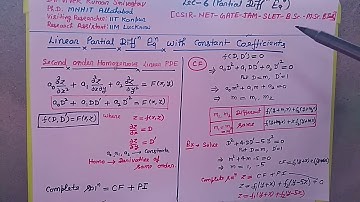 Ph.D. MNNIT Allahabad
Visiting Researcher: IIT Kanpur
Research Assistant: IIM Lucknow
Lec-6 (Partial Diffⁿ Eqⁿ)
[CSIR-NET-GATE-JAM-SLET-B.Sc-M.Sc
Linear Partial Diffⁿ Eqⁿ with Constant Coefficients
Second order Homogeneous Linear PDE
a₀ ∂²z/∂x² + a₁ ∂²z/∂x∂y + a₂ ∂²z/∂y² = F(x,y)
a₀D² + a₁DD' + a₂D'² = F(x,y)
f(D,D') = F(x,y)
where z = f(x,y)
∂z/∂x = D
∂z/∂y = D'
a₀, a₁, a₂ → Constants
Homo → Derivative of same order
Complete solⁿ = CF + PI
CF
f(D,D') = 0
⇒ a₀D² + a₁DD' + a₂D'² = 0
Put D=m, D'=1
⇒ a₀m² + a₁m + a₂ = 0
⇒ m = m₁, m₂
m₁, m₂ Different f₁(y+m₁x)+f₂(y+m₂x)
m₁, m₂ Same
Ex → Solve D²+4DD'-5D'²=0
Put D=m, D'=1
⇒ m²+4m-5=0
⇒ m=1,-5
CF = f₁(y+x)+f₂(y-5x)
Complete solⁿ z = CF + PI
z = f₁(y+x)+f₂(y-5x)+0
z = f₁(y+x)+f₂(y-5x)